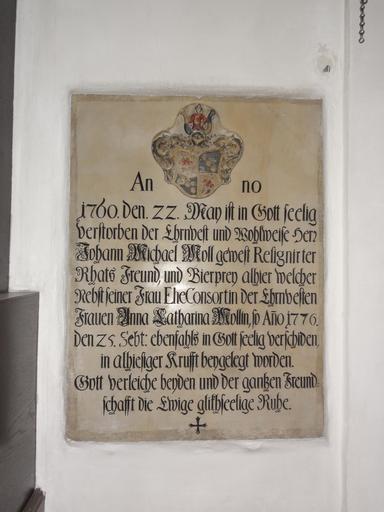 An no
1760. den. 22. May ist in Gott seelig
verstorben der Ehrnvest und Wohlweise Herr
Johann Michael Moll gewest Resignirter
Rhats Freund, und Bierprey alhier welcher
Nebst seiner Frau EheConsortin der Ehrnvesten
Frauen Anna Catharina Mollin, so Año 1776.
den 25. Sebt: ebenfahls in Gott seelig verschiden,
in alhiesiger Krufft beygelegt worden.
Gott verleiche beyden und der gantzen Freund=
schafft die Ewige glikhseelige Ruhe.